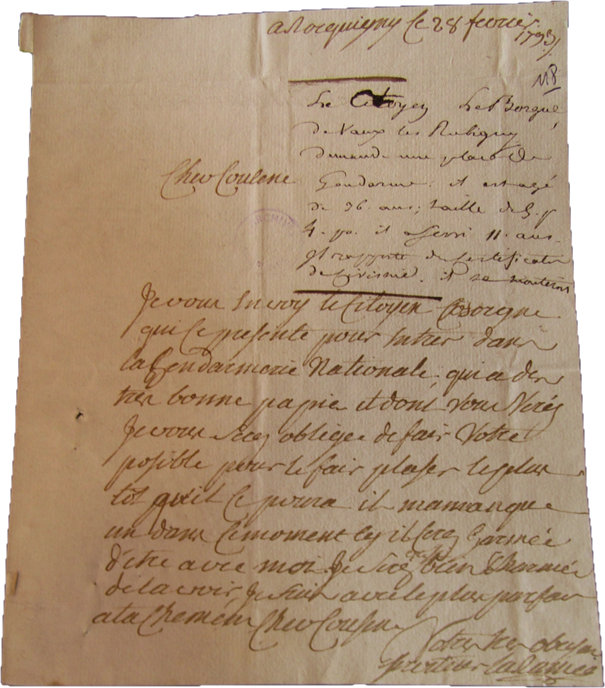 a Rocquigny le 28 fevrier
1793
118
Le Citoyen Le Borgne,
de Vaux les Rubigny
demande une place de
Gendarme. il est agé
de 36 ans; taille de 5. p
4. po. il a servi 11. ans
et rapporte du certificat
de civisme. il se montera
Cher Coulene
Je vous Invoy le Citoyen Borgne
qui ce présente pour Intrer dans
la Gendarmerie Nationale, qui a des
tres bonne papie et dont vous Verés
Je vous serez obligee de fair Votre
posible pour le fair plaser le plus
tot qu'il ce poura il mamanque
un dans cemoment cy il serez
d'etre avec moi Je serez bien Charmée
de la voir, Je suis avec le plus parfai
atachement Cher Cousin
Votre tres